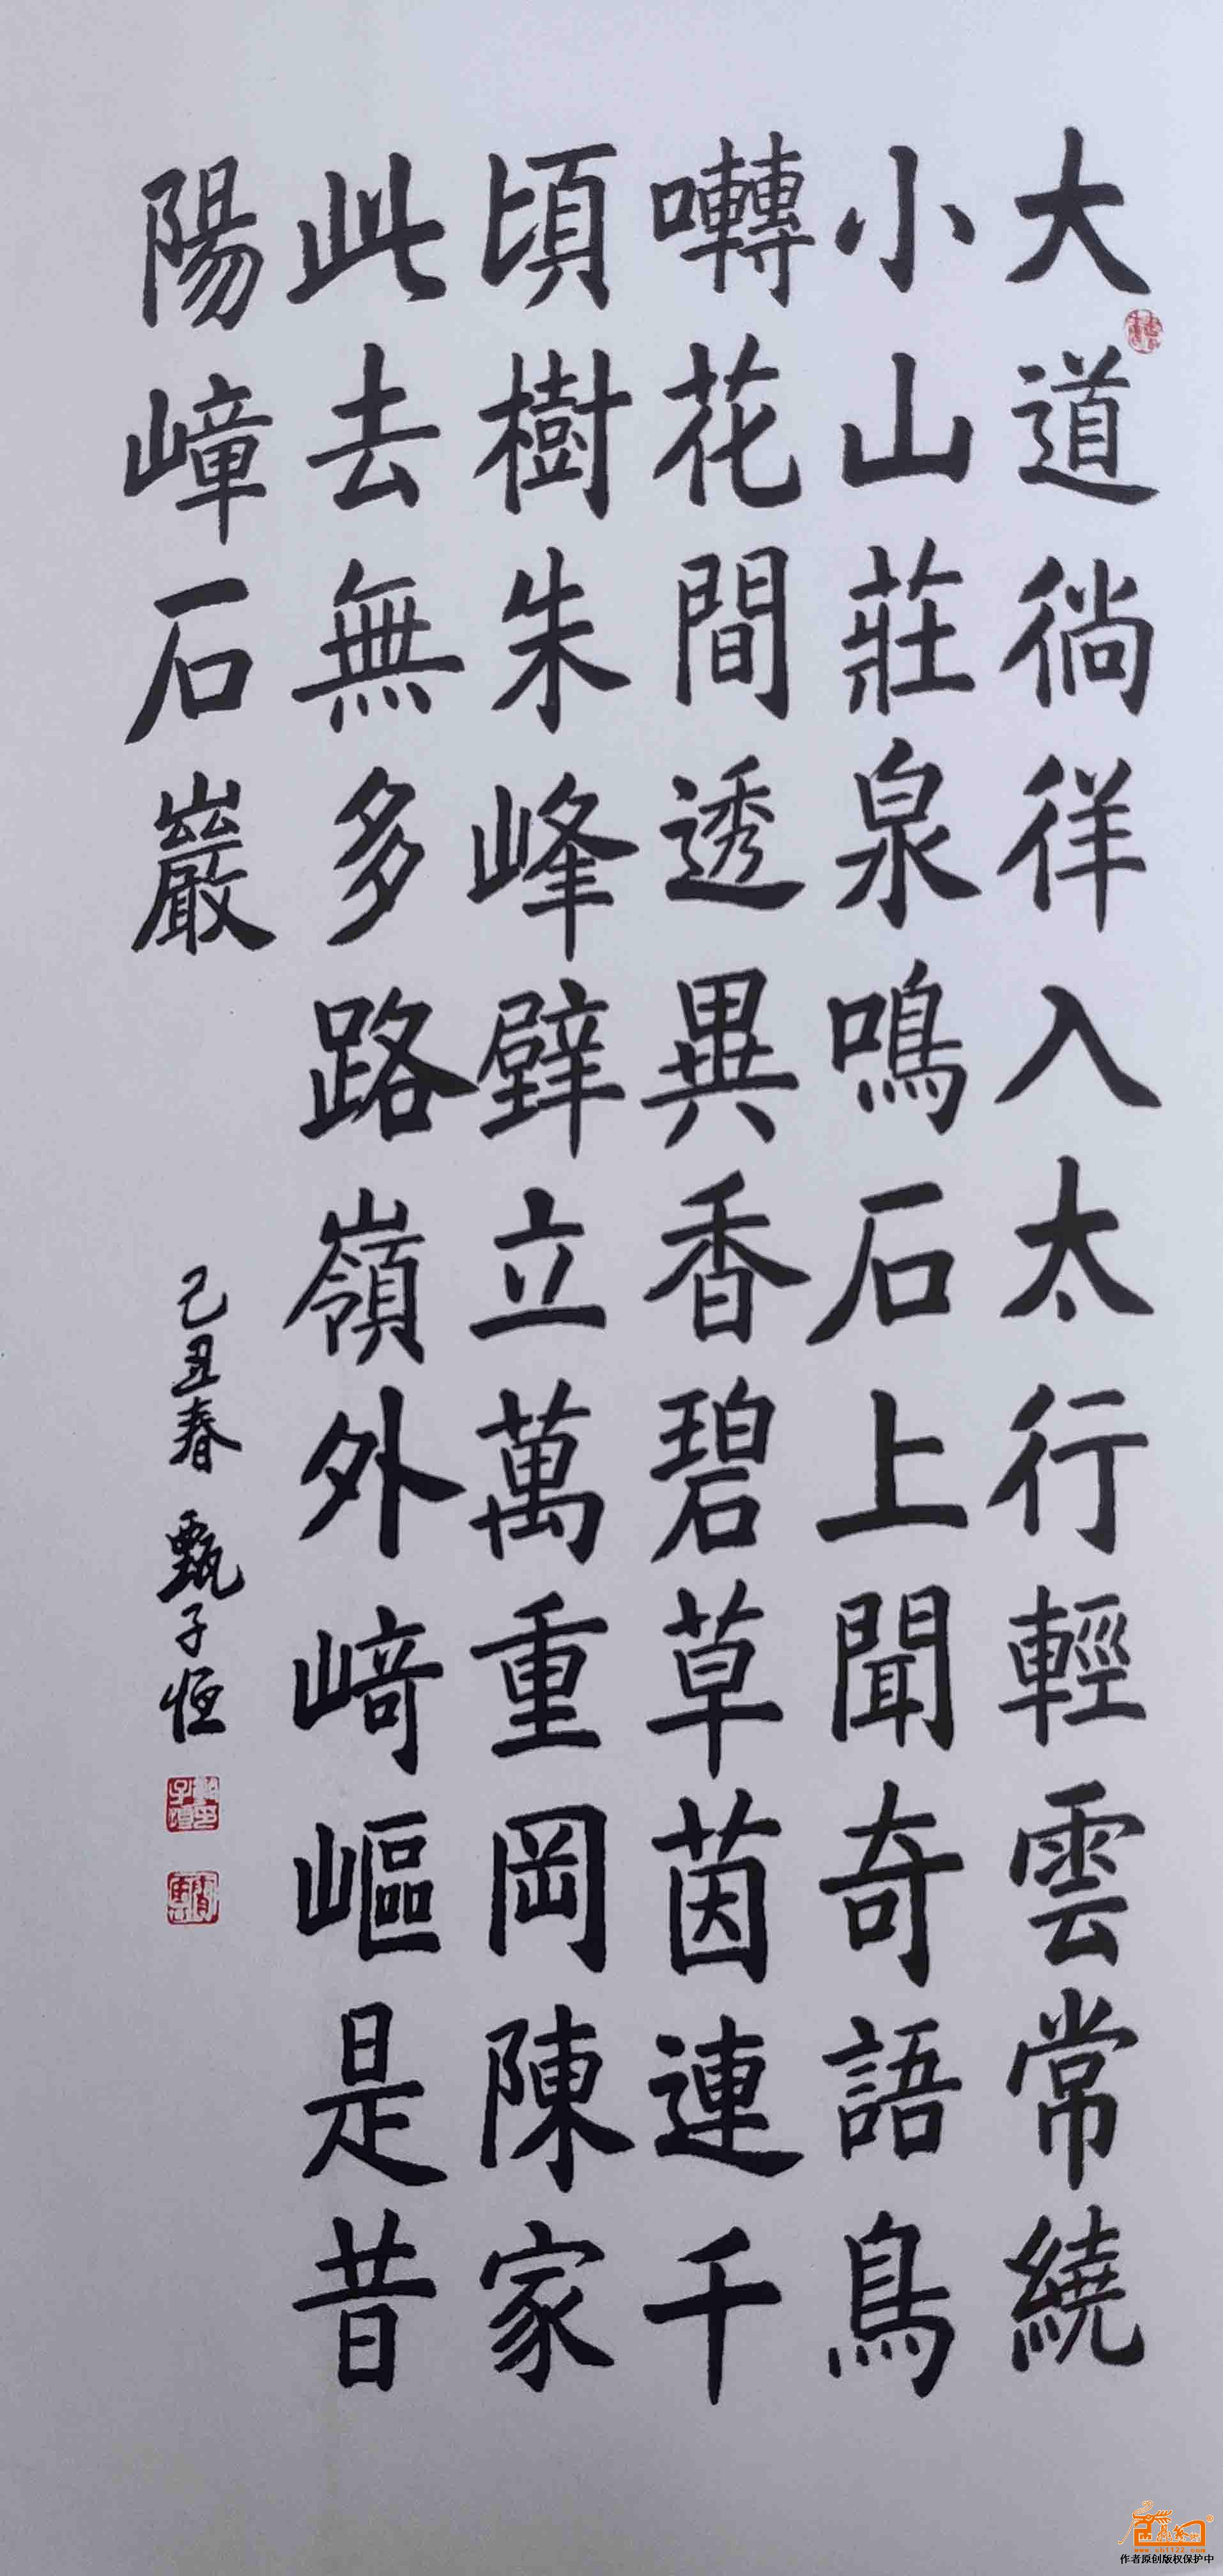 大道徜徉入太行輕雲常繞
小山莊泉鳴石上聞奇語鳥
囀花間透異香碧草茵連千
頃樹朱峰壁立萬重岡陳家
此去無多路嶺外崎嶇是昔
陽嶂石巖
己丑春 甄子恒
www.sh1122.com
作者原创版权保护中